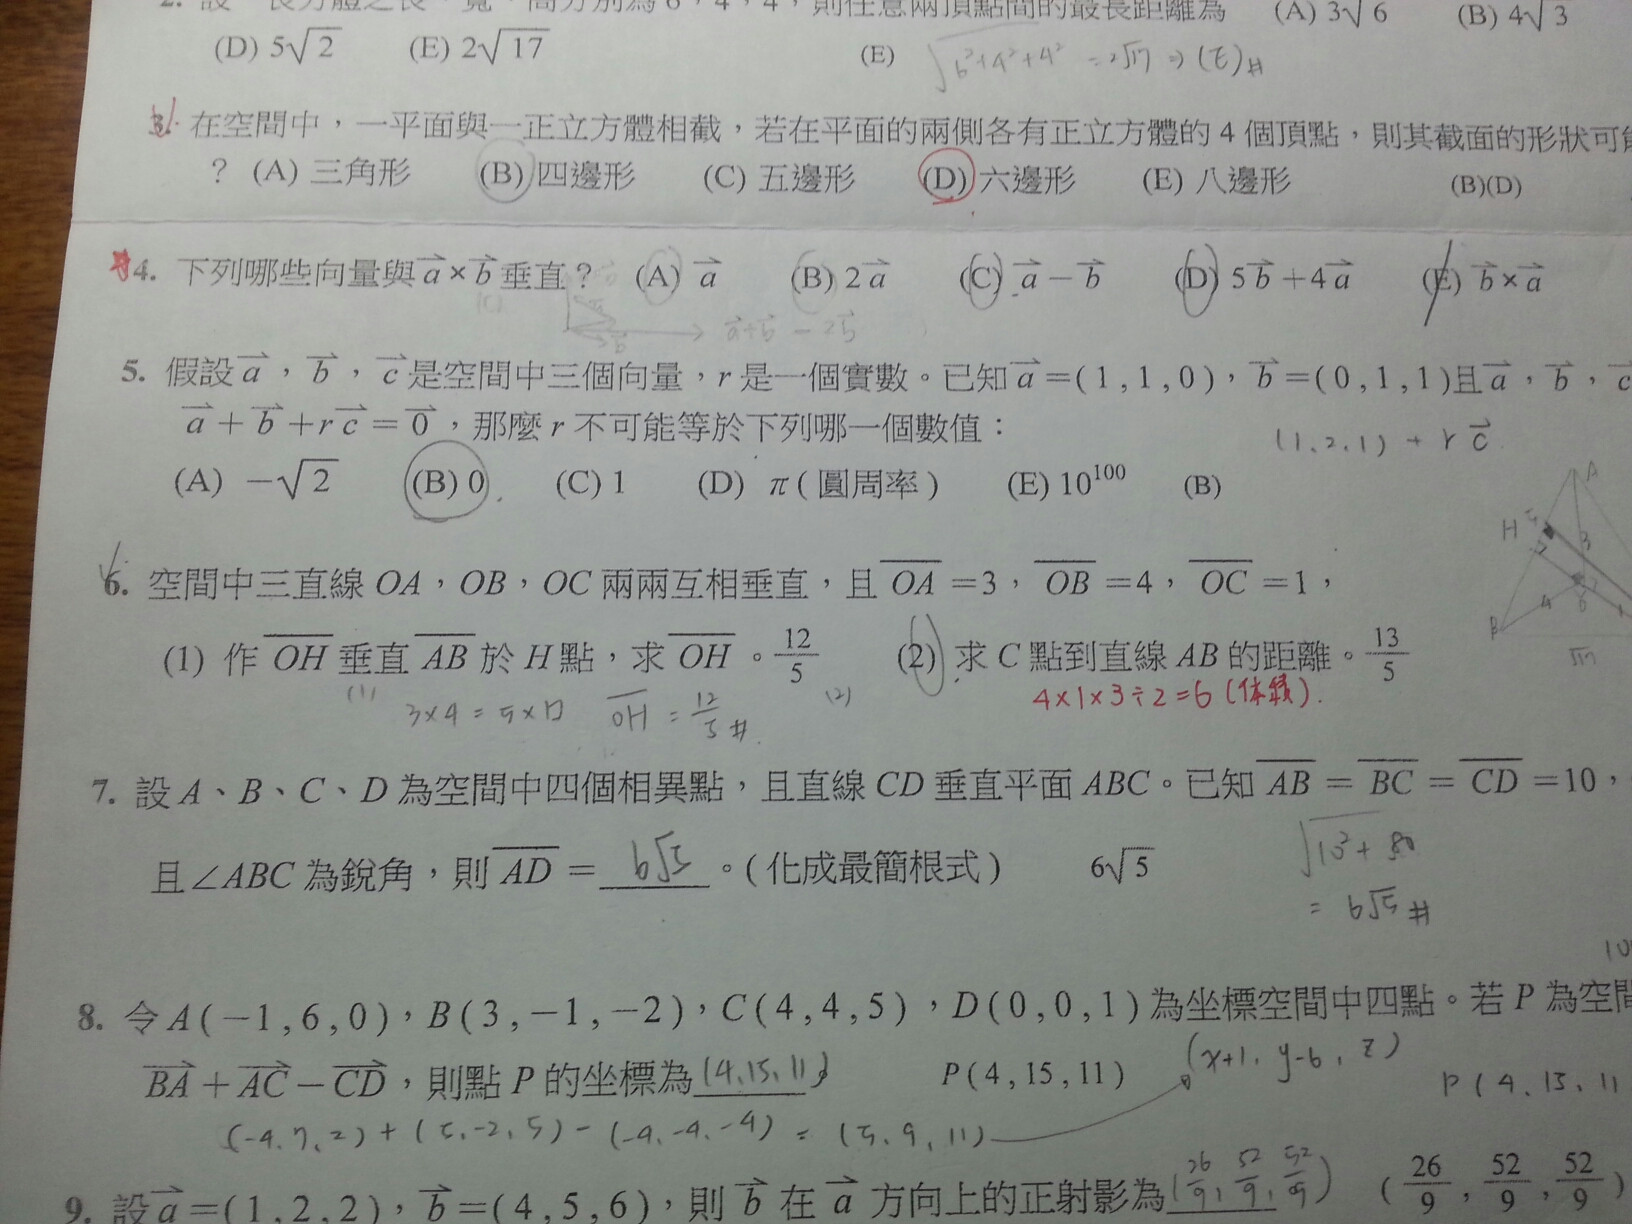 2. 設一長方體之長、寬、高分別為6,4,4,則任意兩頂點間的最長距離為 (A) 3√6 (B) 4√3
(D) 5√2 (E) 2√17 (E) √6²+4²+4² = 2√17 ⇒ (E)#
3. 在空間中,一平面與一正立方體相截,若在平面的兩側各有正立方體的4個頂點,則其截面的形狀可能
? (A) 三角形 (B) 四邊形 (C) 五邊形 (D) 六邊形 (E) 八邊形 (B)(D)
4. 下列哪些向量與a⃗×b⃗垂直? (A) a⃗ (B) 2a⃗ (C) a⃗−b⃗ (D) 5b⃗+4a⃗ (E) b⃗×a⃗
a⃗+b⃗ − 2b⃗
5. 假設a⃗,b⃗,c⃗是空間中三個向量,r是一個實數。已知a⃗=(1,1,0),b⃗=(0,1,1)且a⃗,b⃗,c
a⃗+b⃗+rc⃗=0⃗,那麼r不可能等於下列哪一個數值:
(1,2,1) + r c⃗
(A) −√2 (B) 0 (C) 1 (D) π(圓周率) (E) 10¹⁰⁰ (B)
A
H
3
4
B
6. 空間中三直線OA,OB,OC兩兩互相垂直,且OA=3,OB=4,OC=1,
(1) 作OH垂直AB於H點,求OH。12/5 (2) 求C點到直線AB的距離。13/5
(1) 3×4=5×□ OH=12/5# (2) 4×1×3÷2=6(体積).
7. 設A、B、C、D為空間中四個相異點,且直線CD垂直平面ABC。已知AB=BC=CD=10,
且∠ABC為銳角,則AD=6√5。(化成最簡根式) 6√5
√10²+80
= 6√5#
8. 令A(−1,6,0),B(3,−1,−2),C(4,4,5),D(0,0,1)為坐標空間中四點。若P為空間
BA⃗+AC⃗−CD⃗,則點P的坐標為(4,15,11) P(4,15,11) (x+1, y-6, z) P(4,15,11
(-4,7,2)+(5,-2,5)-(-4,-4,-4)=(5,9,11)
9. 設a⃗=(1,2,2),b⃗=(4,5,6),則b⃗在a⃗方向上的正射影為(26/9,52/9,52/9) (26/9,52/9,52/9)